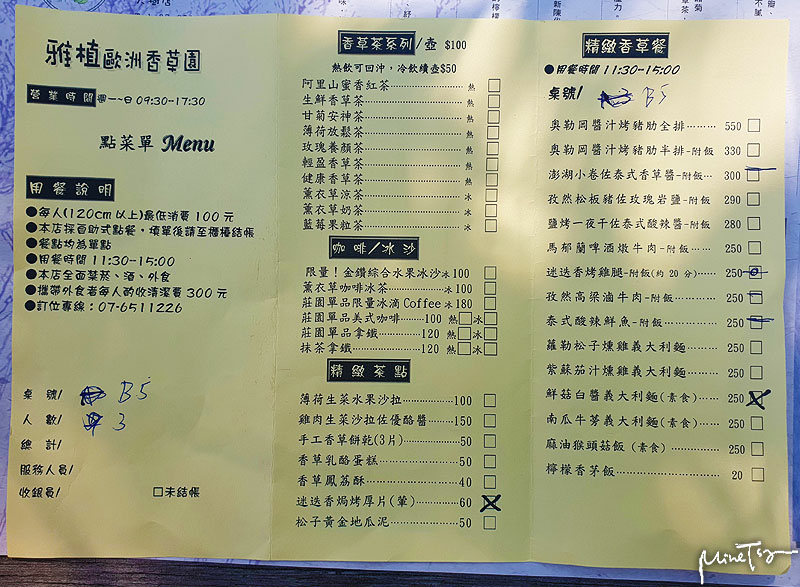 雅植歐洲香草園
營業時間 週一~日 09:30-17:30
點菜單 Menu
用餐說明
●每人(120cm 以上)最低消費 100 元
●本店採自助式點餐，填單後請至櫃檯結帳
●餐點均為單點
●用餐時間 11:30-15:00
●本店全面禁菸、酒、外食
●攜帶外食者每人酌收清潔費 300 元
●訂位專線：07-6511226
桌 號/ B5
人 數/ 3
總 計/
服務人員/
收銀員/ □未結帳
香草茶系列/壺 $100
熱飲可回沖，冷飲續壺$50
阿里山蜜香紅茶 熱 □
生鮮香草茶 熱 □
甘菊安神茶 熱 □
薄荷放鬆茶 熱 □
玫瑰養顏茶 熱 □
輕盈香草茶 熱 □
健康香草茶 熱 □
薰衣草涼茶 冰 □
薰衣草奶茶 冰 □
藍莓果粒茶 冰 □
咖啡/冰沙
限量！金鑽綜合水果冰沙冰 100 □
薰衣草咖啡冰茶 冰 100 □
莊園單品限量冰滴 Coffee 冰 180 □
莊園單品美式咖啡 100 熱□冰□
莊園單品拿鐵 120 熱□冰□
抹茶拿鐵 120 熱□冰□
精緻茶點
薄荷生菜水果沙拉 100 □
雞肉生菜沙拉佐優酪醬 150 □
手工香草餅乾(3片) 50 □
香草乳酪蛋糕 50 □
香草鳳荔酥 40 □
迷迭香焗烤厚片(葷) 60
松子黃金地瓜泥 50 □
精緻香草餐
●用餐時間 11:30-15:00
桌號/ B5
奧勒岡醬汁烤豬肋全排 550 □
奧勒岡醬汁烤豬肋半排-附飯 330 □
澎湖小卷佐泰式香草醬-附飯 300 □
孜然松板豬佐玫瑰岩鹽-附飯 290 □
鹽烤一夜干佐泰式酸辣醬-附飯 280 □
馬郁蘭啤酒燉牛肉-附飯 250 □
迷迭香烤雞腿-附飯(約 20 分) 250
孜然高梁滷牛肉-附飯 250 □
泰式酸辣鮮魚-附飯 250 □
蘿勒松子燻雞義大利麵 250 □
紫蘇茄汁燻雞義大利麵 250 □
鮮菇白醬義大利麵(素食) 250
南瓜牛蒡義大利麵(素食) 250 □
麻油猴頭菇飯(素食) 250 □
檸檬香茅飯 20 □
MineTsz